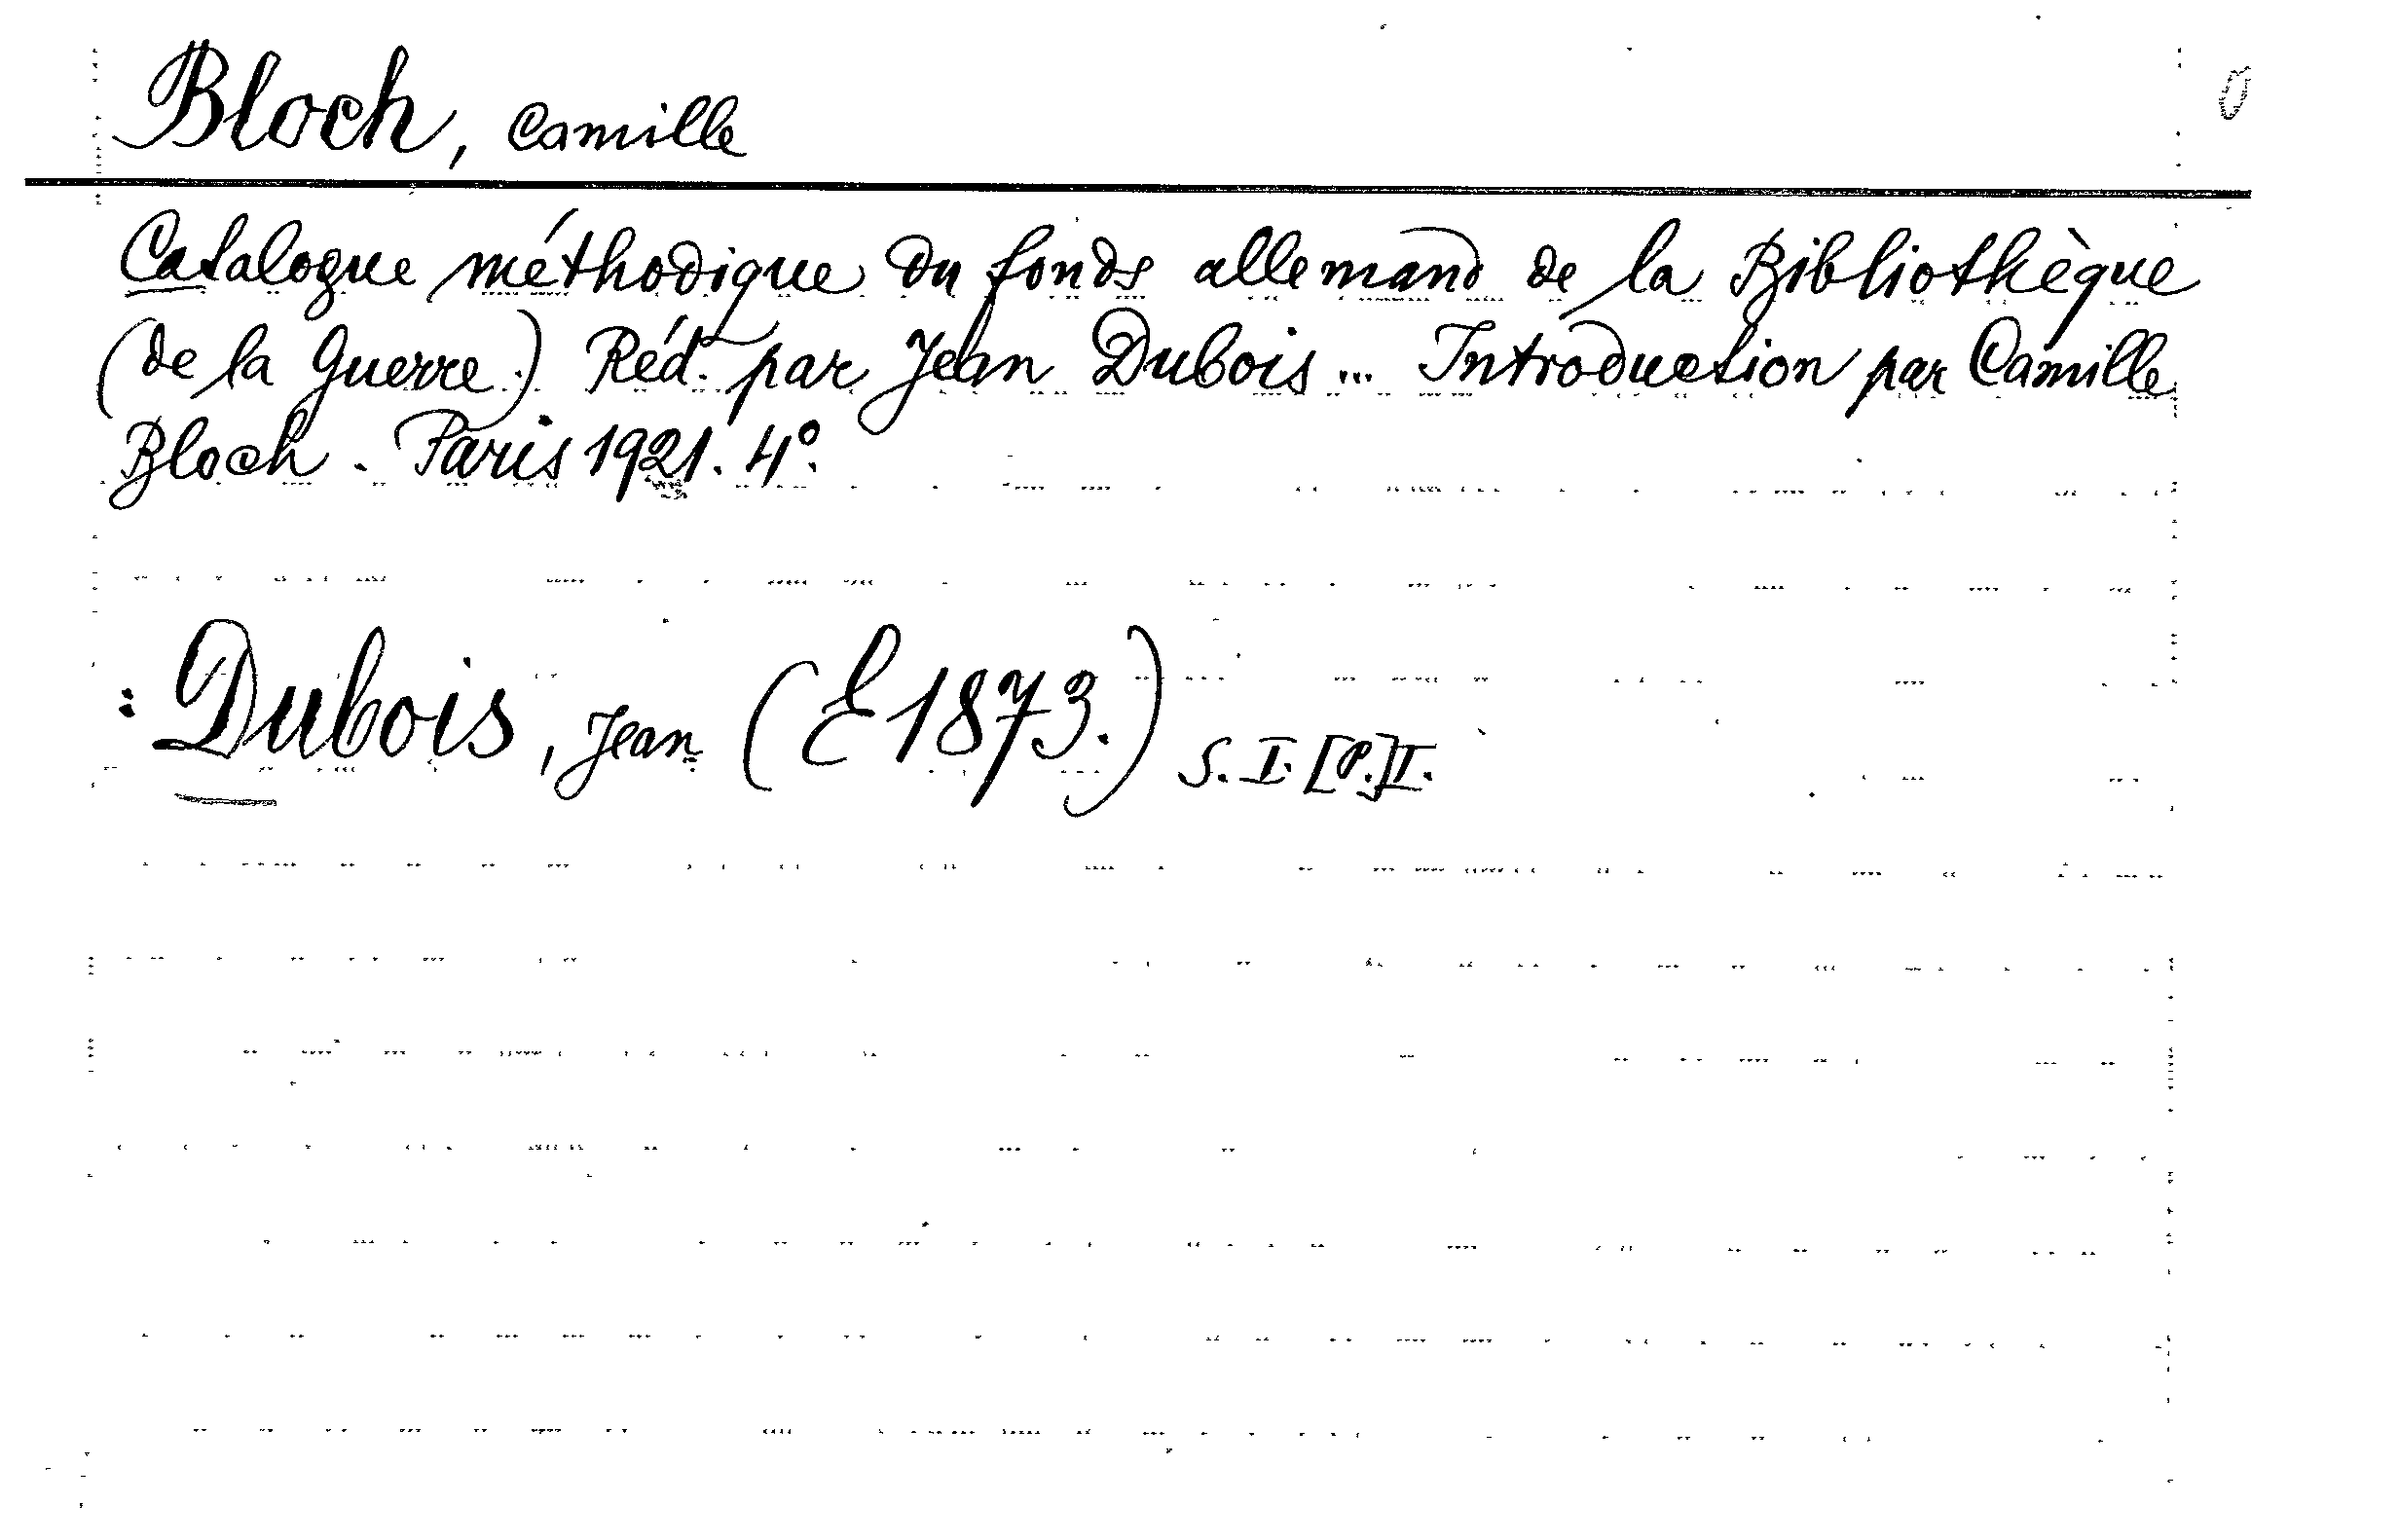 Bloch, Camille
Catalogue méthodique du fonds allemand de la Bibliothèque
(de la Guerre.) Réd. par Jean Dubois... Introduction par Camille
Bloch. Paris 1921. 4°.
: Dubois, Jean (E 1873.) S. I. [P.] I.